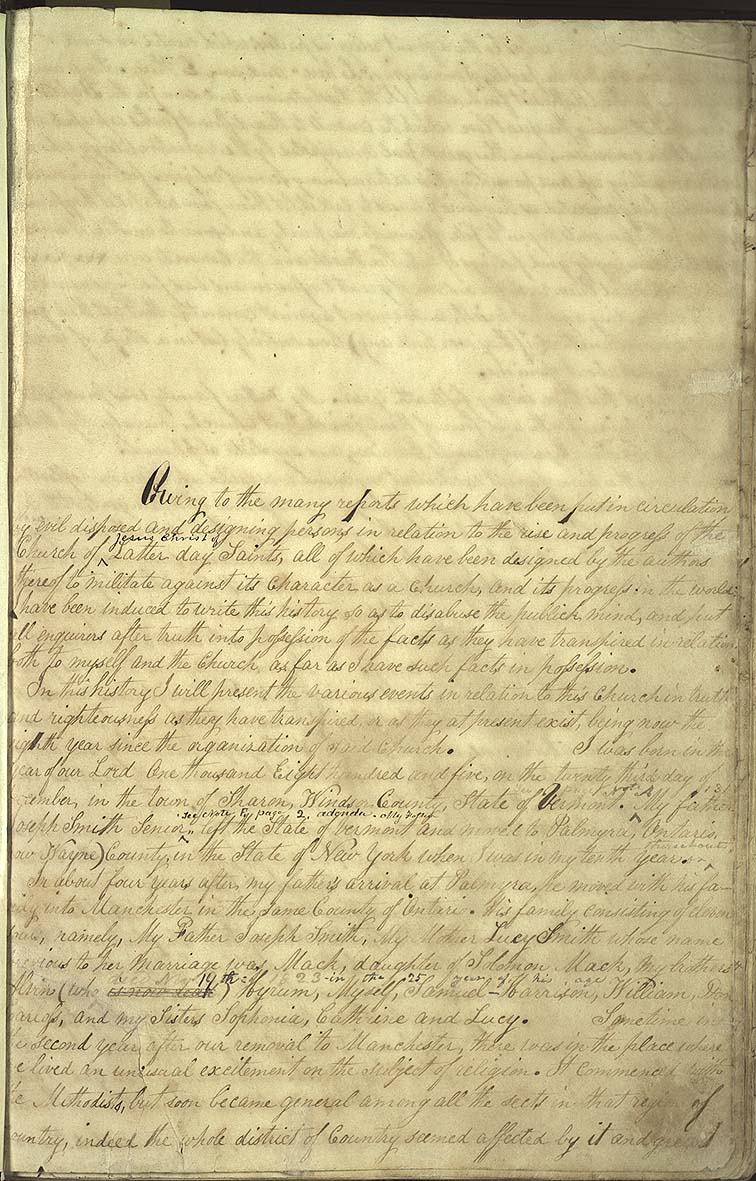 Owing to the many reports which have been put in circulation
by evil disposed and designing persons in relation to the rise and progress of the
Jesus Christ of
Church of Latter day Saints, all of which have been designed by the authors
thereof to militate against its character as a church, and its progress in the world;
I have been induced to write this history so as to disabuse the publick mind, and put
all enquirers after truth into possession of the facts as they have transpired in relation
both to myself and the Church as far as I have such facts in possession.
In this history I will present the various events in relation to this Church in truth
and righteousness as they have transpired, or as they at present exist, being now the
eighth year since the organization of said Church. I was born in the
year of our Lord One thousand Eight hundred and five, on the twenty third day of
December, in the town of Sharon, Windsor County, State of Vermont. My father
see page 2. adenda
Joseph Smith Senior left the State of Vermont and moved to Palmyra, Ontario,
thereabout
(now Wayne) County, in the State of New York when I was in my tenth year. or
In about four years after my father's arrival at Palmyra, he moved with his fa-
mily into Manchester in the same County of Ontario. His family consisting of eleven
souls, namely, My Father Joseph Smith, My Mother Lucy Smith whose name
previous to her marriage was Mack, daughter of Solomon Mack, My brothers
19th 1823 in the 25 year of his age
Alvin (who is now dead) Hyrum, Myself, Samuel-Harrison, William, Don
Carloss, and my Sisters Sophronia, Cathrine and Lucy. Sometime in
the second year after our removal to Manchester, there was in the place where
we lived an unusual excitement on the subject of religion. It commenced with
the Methodists, but soon became general among all the sects in that region of
country, indeed the whole district of Country seemed affected by it and great